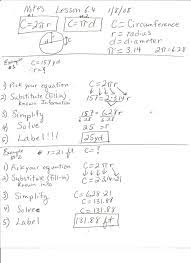 Notes Lesson 6.4 1/8/08
C=2πr C=πd C= Circumference
r = radius
d = diameter
π = 3.14 2π=6.28
Example #1 C=157yd
r=?
1) Pick your equation C=2πr
2) Substitute (fill-in) known info 157=2·3.14·r
3) Simplify 157=6.28r
4) Solve 25=r
5) Label!!! 25yd
Example #2 r=21ft C=?
1) Pick your equation C=2πr
2) Substitute (fill-in) known info C=2·3.14·21
3) Simplify C=6.28·21
C=131.88
4) Solve C=131.88
5) Label 131.88 ft